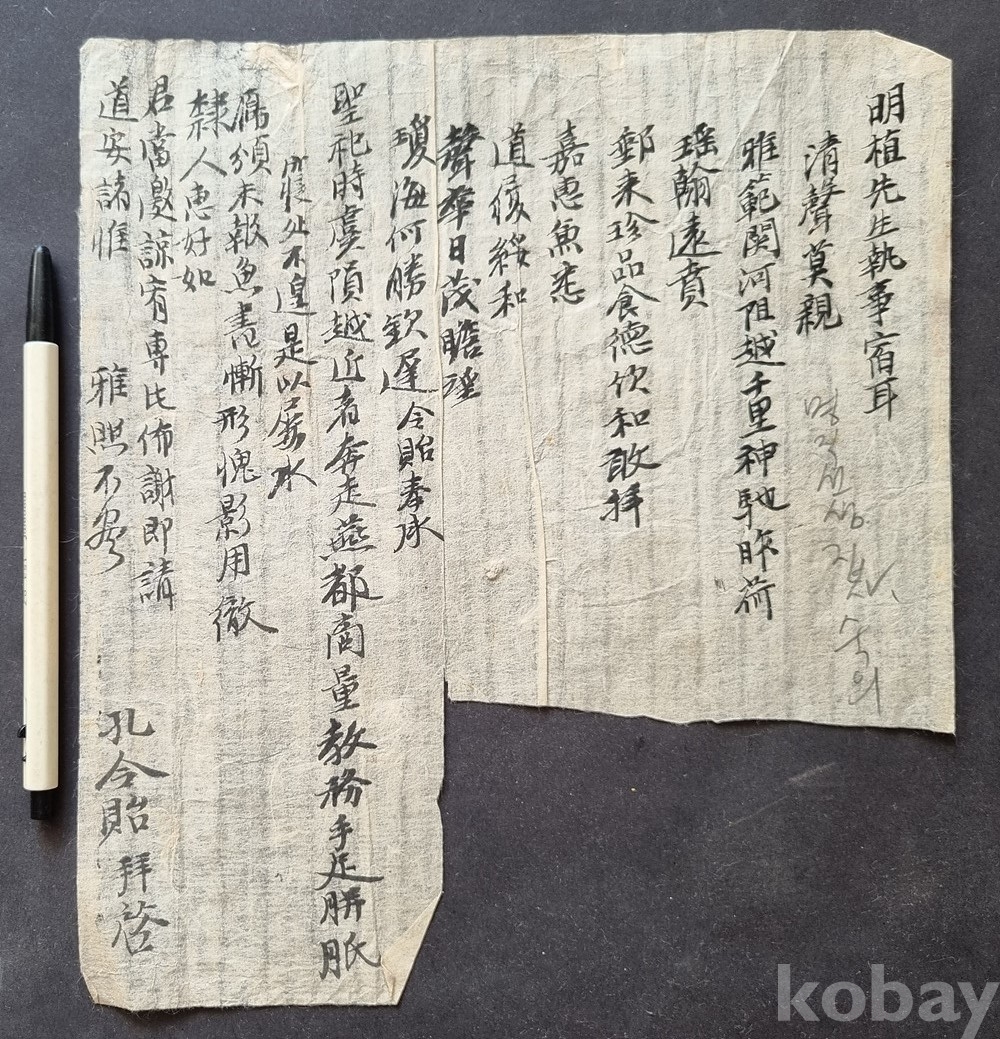 明植先生執事宿耳
清聲莫親
雅範関河阻越千里神馳昨荷
瑶翰遠賁
郵来珍品食德飲和敢拜
嘉惠魚悉
道候綏和
聲華日茂瞻瑶
瓊海何勝欽遲令貽奉承
聖祀時虞隕越近者奔走燕都商量教務手足胼胝
處不遑是以屡承
頒未報魚書慚形愧影用徹
隸人惠好如
君當邀諒宥專此佈謝即請
道安諸惟
雅照不尽
孔令貽 拜啓
명식선생
kobay